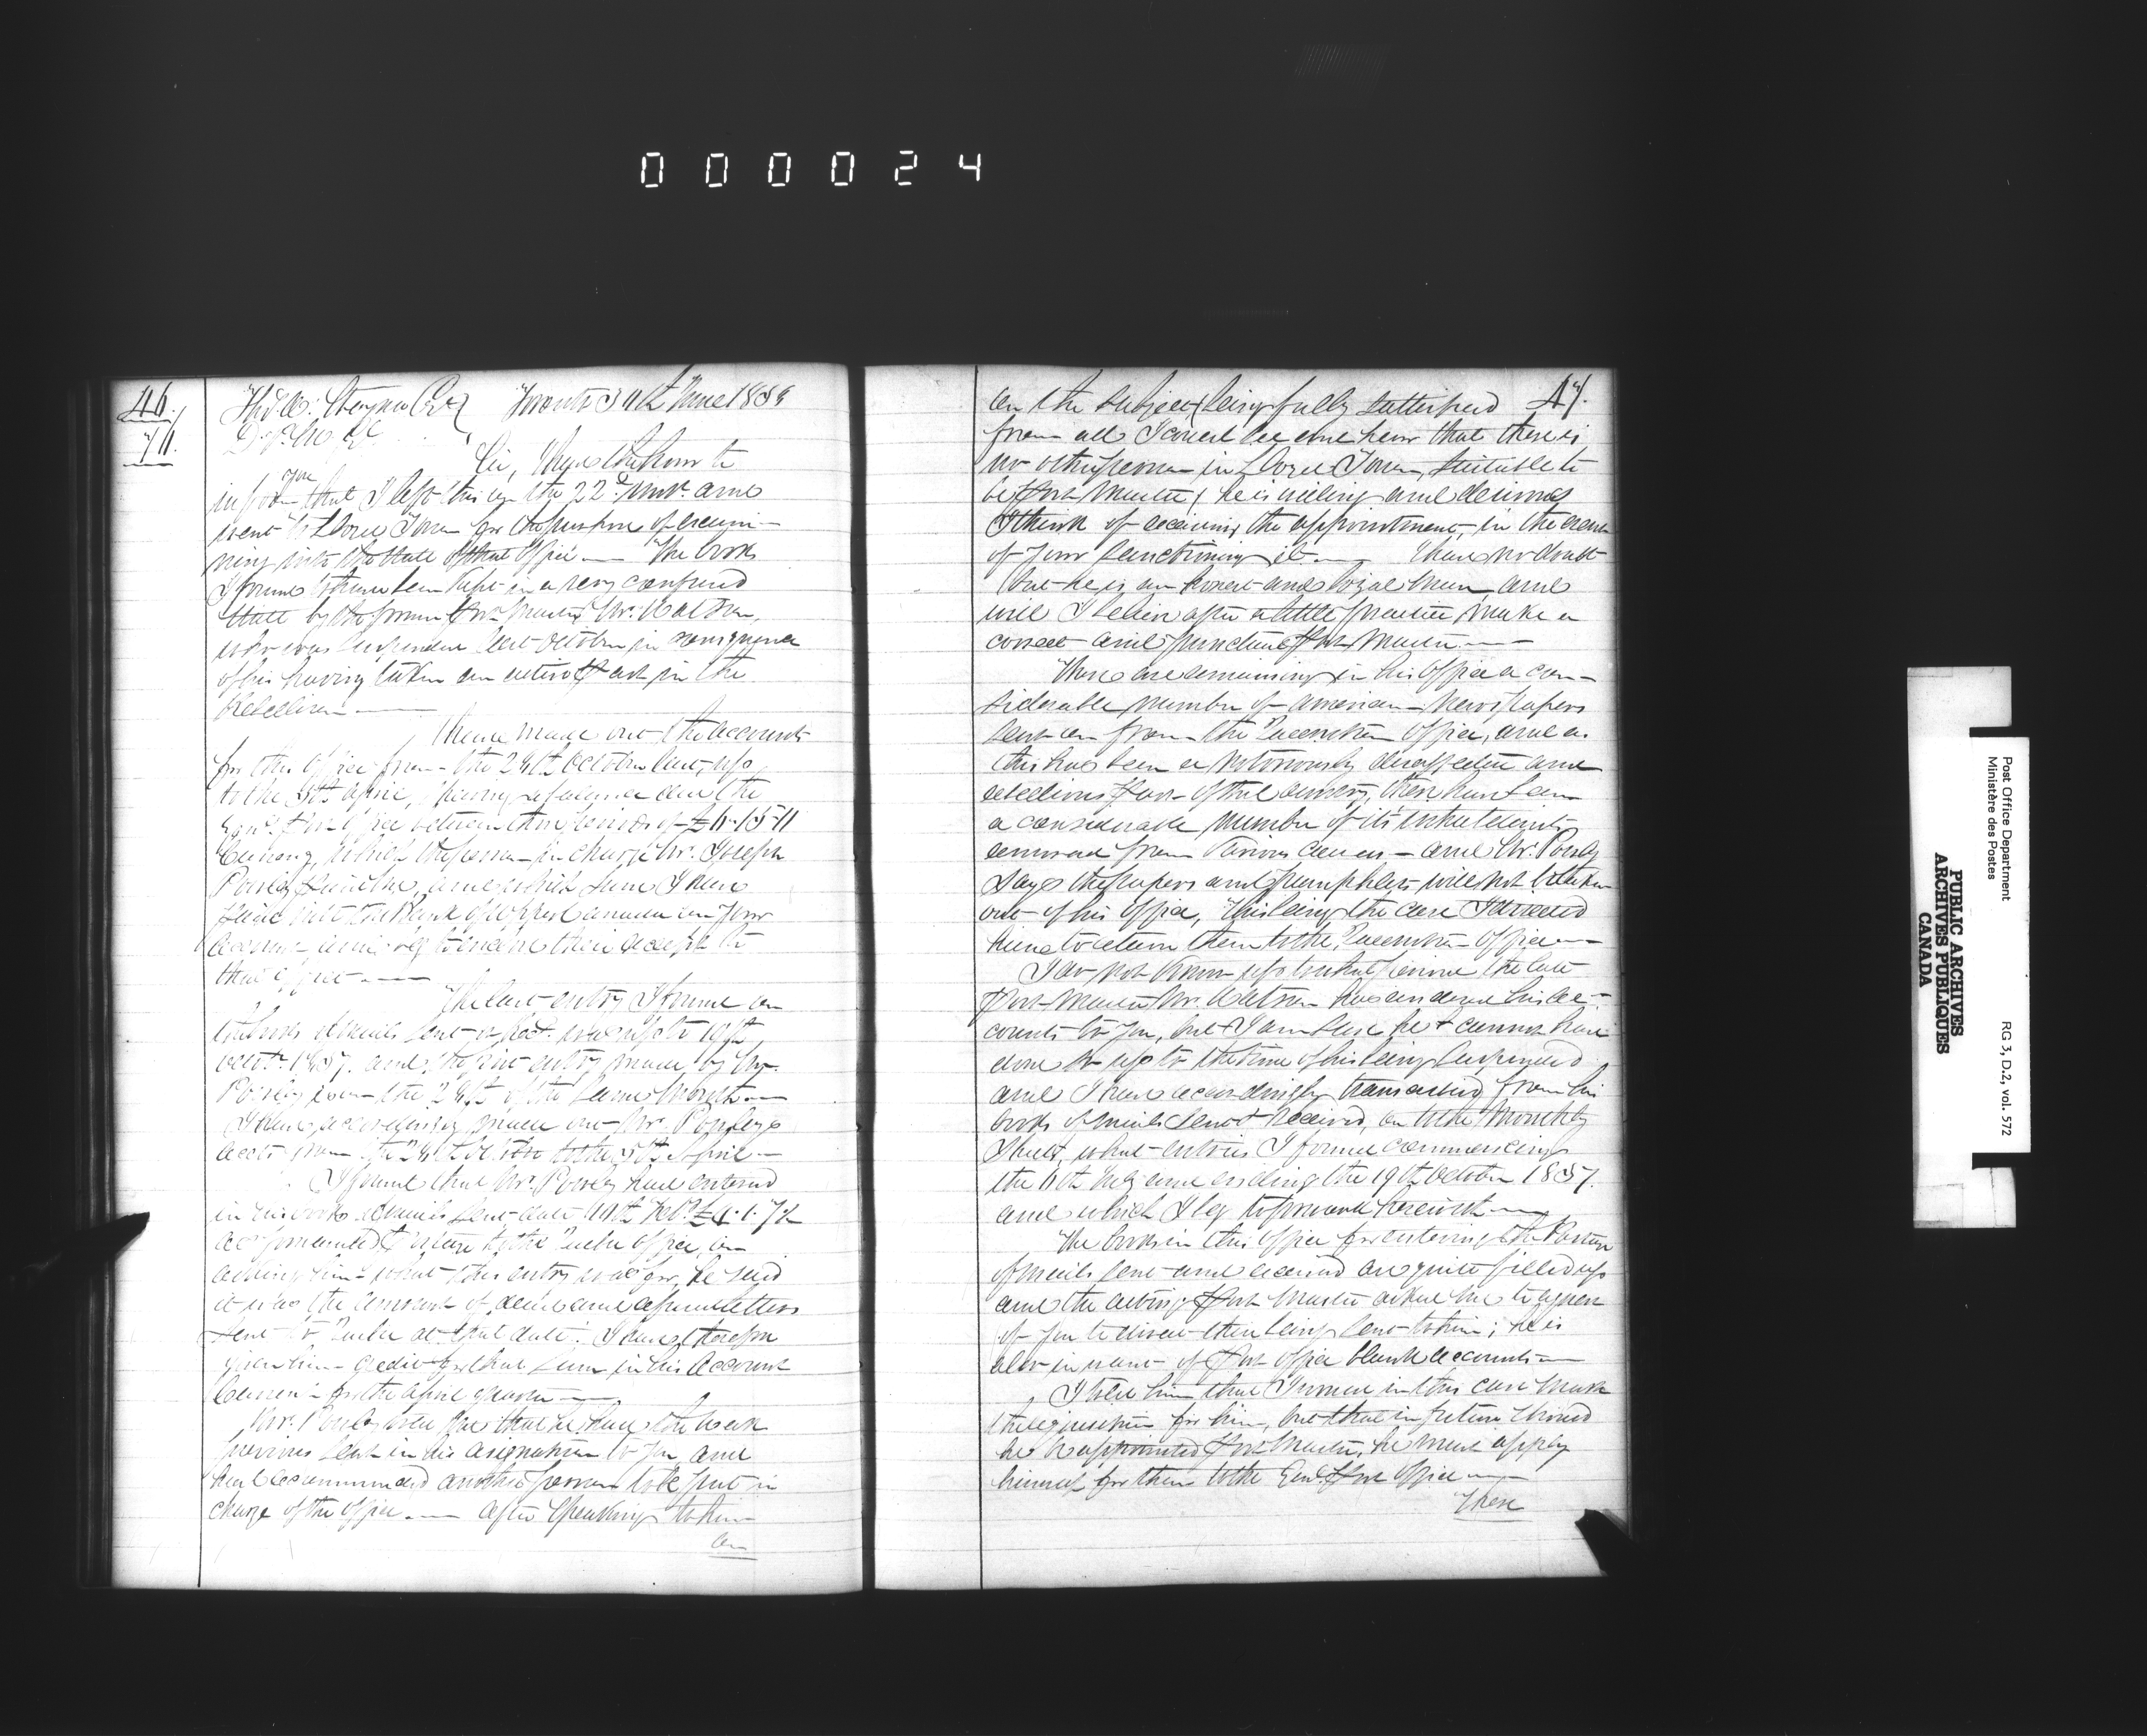 000024
46.
71.
Thos. A. Stayner Esq Toronto 4th June 1838
D.P.M.G.
Sir, I have the honor to
inform you that I left this on the 22d and
went to Lloyd Town for the purpose of exami-
ning into the state of that Office — The books
I found to have been kept in a very confused
state by the former Post Master Mr. Watson,
who was suspended last October in consequence
of his having taken an active part in the
Rebellion —
I have made out the accounts
for this Office from the 24th October last, up
to the 5th April, leaving a balance due the
Genl. Post Office between those periods of £4.15.11
Currency, which the person in charge Mr. Joseph
Pousley paid me, and which sum I have
paid into the Bank of Upper Canada on your
account and beg to enclose their receipt to
that effect —
The last entry I found in
the books of mails sent & recd. was up to 19th
Octr. 1837. and the first entry made by Mr.
Pousley was the 24th of the same month —
I have accordingly made out Mr. Pousleys
accts from the 24th October to the 5th April —
I found that Mr. Pousley had entered
in his books of mails sent date 14th Feby £4.1.7½
as forwarded to the Quebec Office, on
asking him what this entry was for, he said
it was the amount of dead and refused letters
sent to Quebec at that date. I have therefore
given him credit for that sum in his Account
Current for the April quarter —
Mr. Pousley told me that he had the week
previous sent in his resignation to you and
had recommended another person to be put in
charge of the Office. — After speaking to him
on
47.
on the subject (being fully satisfied
from all I could see and hear that there is
no other person in Lloyd Town, suitable to
be Post Master) he is willing and desirous
I think of receiving the appointment, in the event
of your sanctioning it — I have no doubt
but he is an honest and loyal man, and
will I believe after a little practice make a
correct and punctual Post Master —
There are remaining in his Office a con-
siderable number of American Newspapers
sent on from the Queenston Office, and as
this has been a notoriously disaffected and
rebellious part of the country, there has been
a considerable number of its inhabitants
removed from various causes — and Mr. Pousley
says the papers and pamphlets will not be taken
out of his Office, this being the case I directed
him to return them to the Queenston Office —
I do not know up to what period the late
Post Master Mr. Watson has rendered his ac-
counts to you, but I am sure he cannot have
done so up to the time of his being suspended
and I have accordingly transcribed from his
books of mails sent & received, on to the Monthly
Sheet, what entries I found commencing
the 11th July and ending the 19th October 1837.
and which I beg to forward herewith —
The books in this Office for entering the Postage
of mails sent and received are quite filled up
and the acting Post Master asked me to request
of you to direct them being sent to him; he is
also in want of Post Office blank accounts —
I told him that I would in this case make
the requisition for him, but that in future should
he be appointed Post Master, he must apply
himself for them to the Genl. Post Office —
These
Post Office Department
Ministère des Postes
RG 3, D.2, vol. 572
PUBLIC ARCHIVES
ARCHIVES PUBLIQUES
CANADA